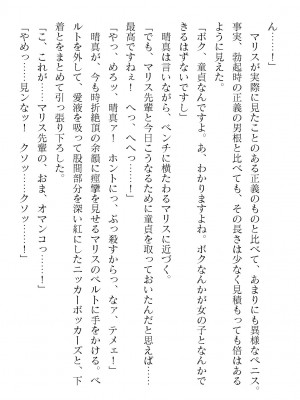 ん……！
　マリスが実際に見たことのある正義のものと比べて、あまりにも異様なペニス。
事実、勃起時の正義の男根と比べても、その長さは少なく見積もっても倍はある
ように見えた。
「ボク、童貞なんですよ。あ、わかりますよね。ボクなんかが女の子となんかで
きるはずないですし」
　晴真は言いながら、ベンチに横たわるマリスに近づく。
「でも、マリス先輩と今日こうなるために童貞を取っておいたんだと思えば……
最高ですねぇ！　へっ、へへっ……！」
「やっ、めろッ、晴真ァ！　ホントにっ、ぶっ殺すからっ、なァ、テメェ！」
　晴真が、今も時折絶頂の余韻に痙攣を見せるマリスのベルトに手をかける。ベ
ルトを外して、愛液を吸って股間部分を深い紅にしたニッカーボッカーズと、下
着とをまとめて引っ張り下ろした。
「こ、これが……マリス先輩の、おま、オマンコっ……！」
「やめっ……見ンなッ！　クソッ……クソッ……！」